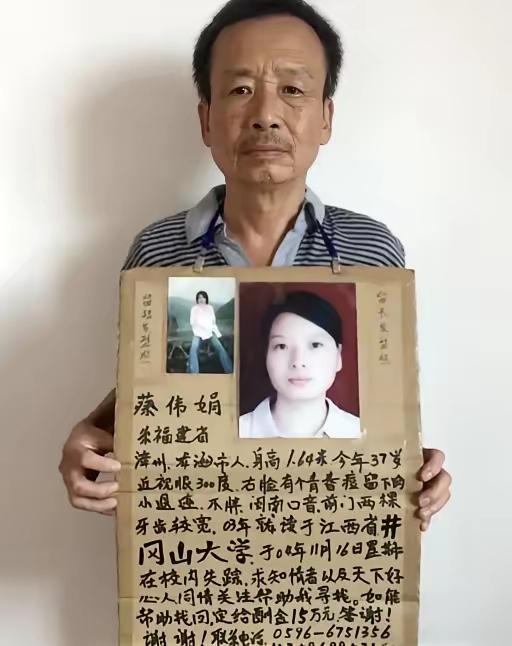 蔡伟娟
福建省
漳州.龙海市人.身高1.64米.今年37岁
近视眼300度.右脸有个青春痘留下的
小退迹.不胖.闽南口音.前门两棵
牙齿较宽.03年就读于江西省井
冈山大学.于04年11月16日星期
在校内失踪.求知情者以及天下好
心人同情关注帮助我寻找。如能
帮助找回.定给酬金15万元.答谢!
谢谢!联系电话 0596-6751356